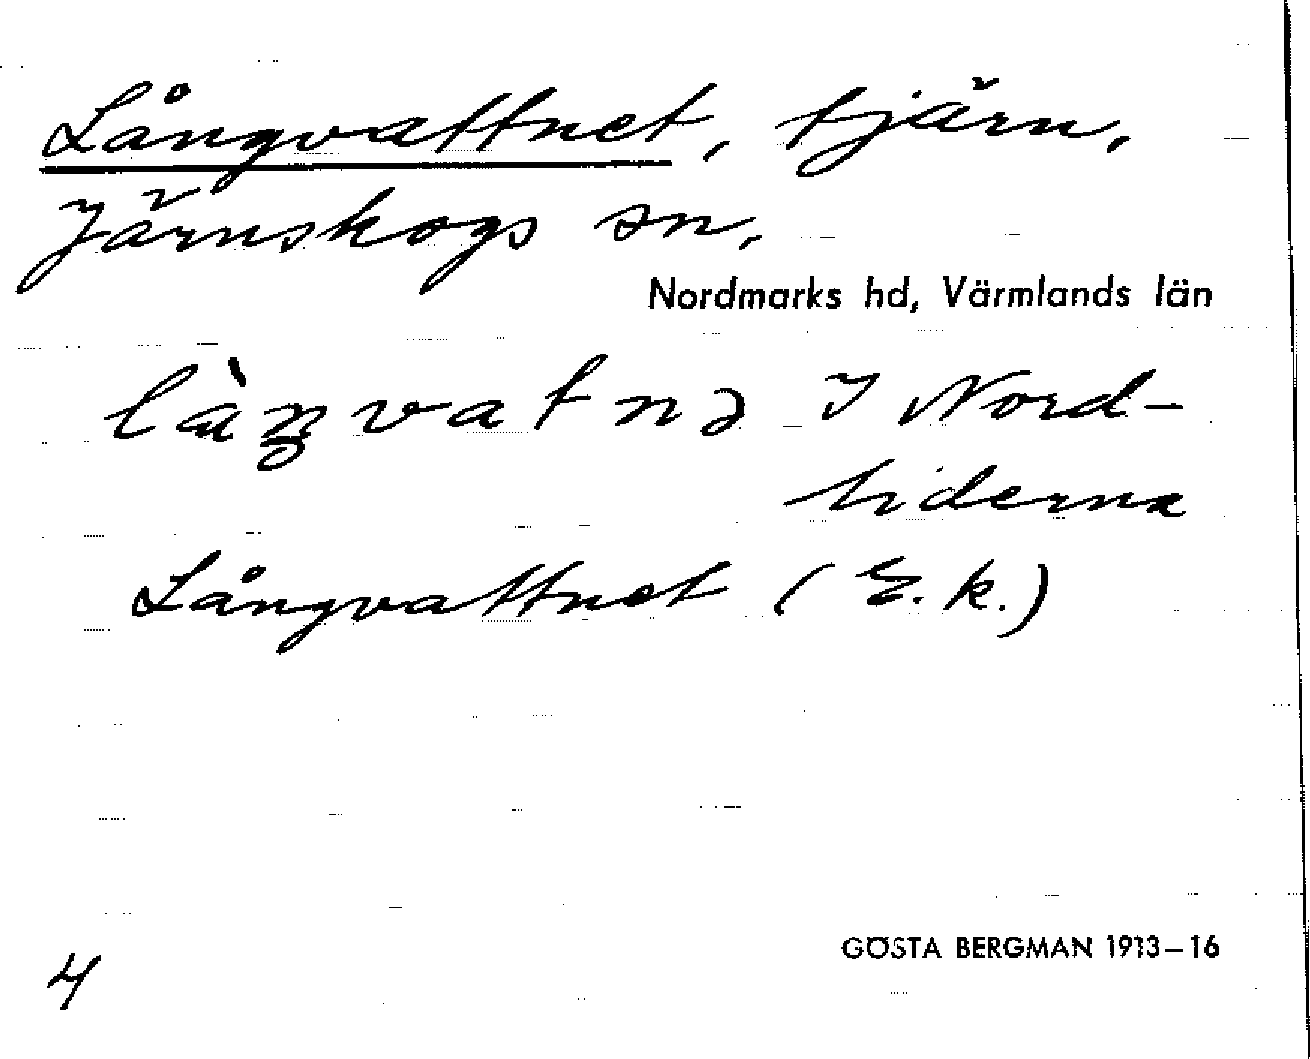 Långvattnet, tjärn,
Järnskogs sn,
Nordmarks hd, Värmlands län
I Nord-
Långvattnet (E.k.)
GÖSTA BERGMAN 1913–16
4